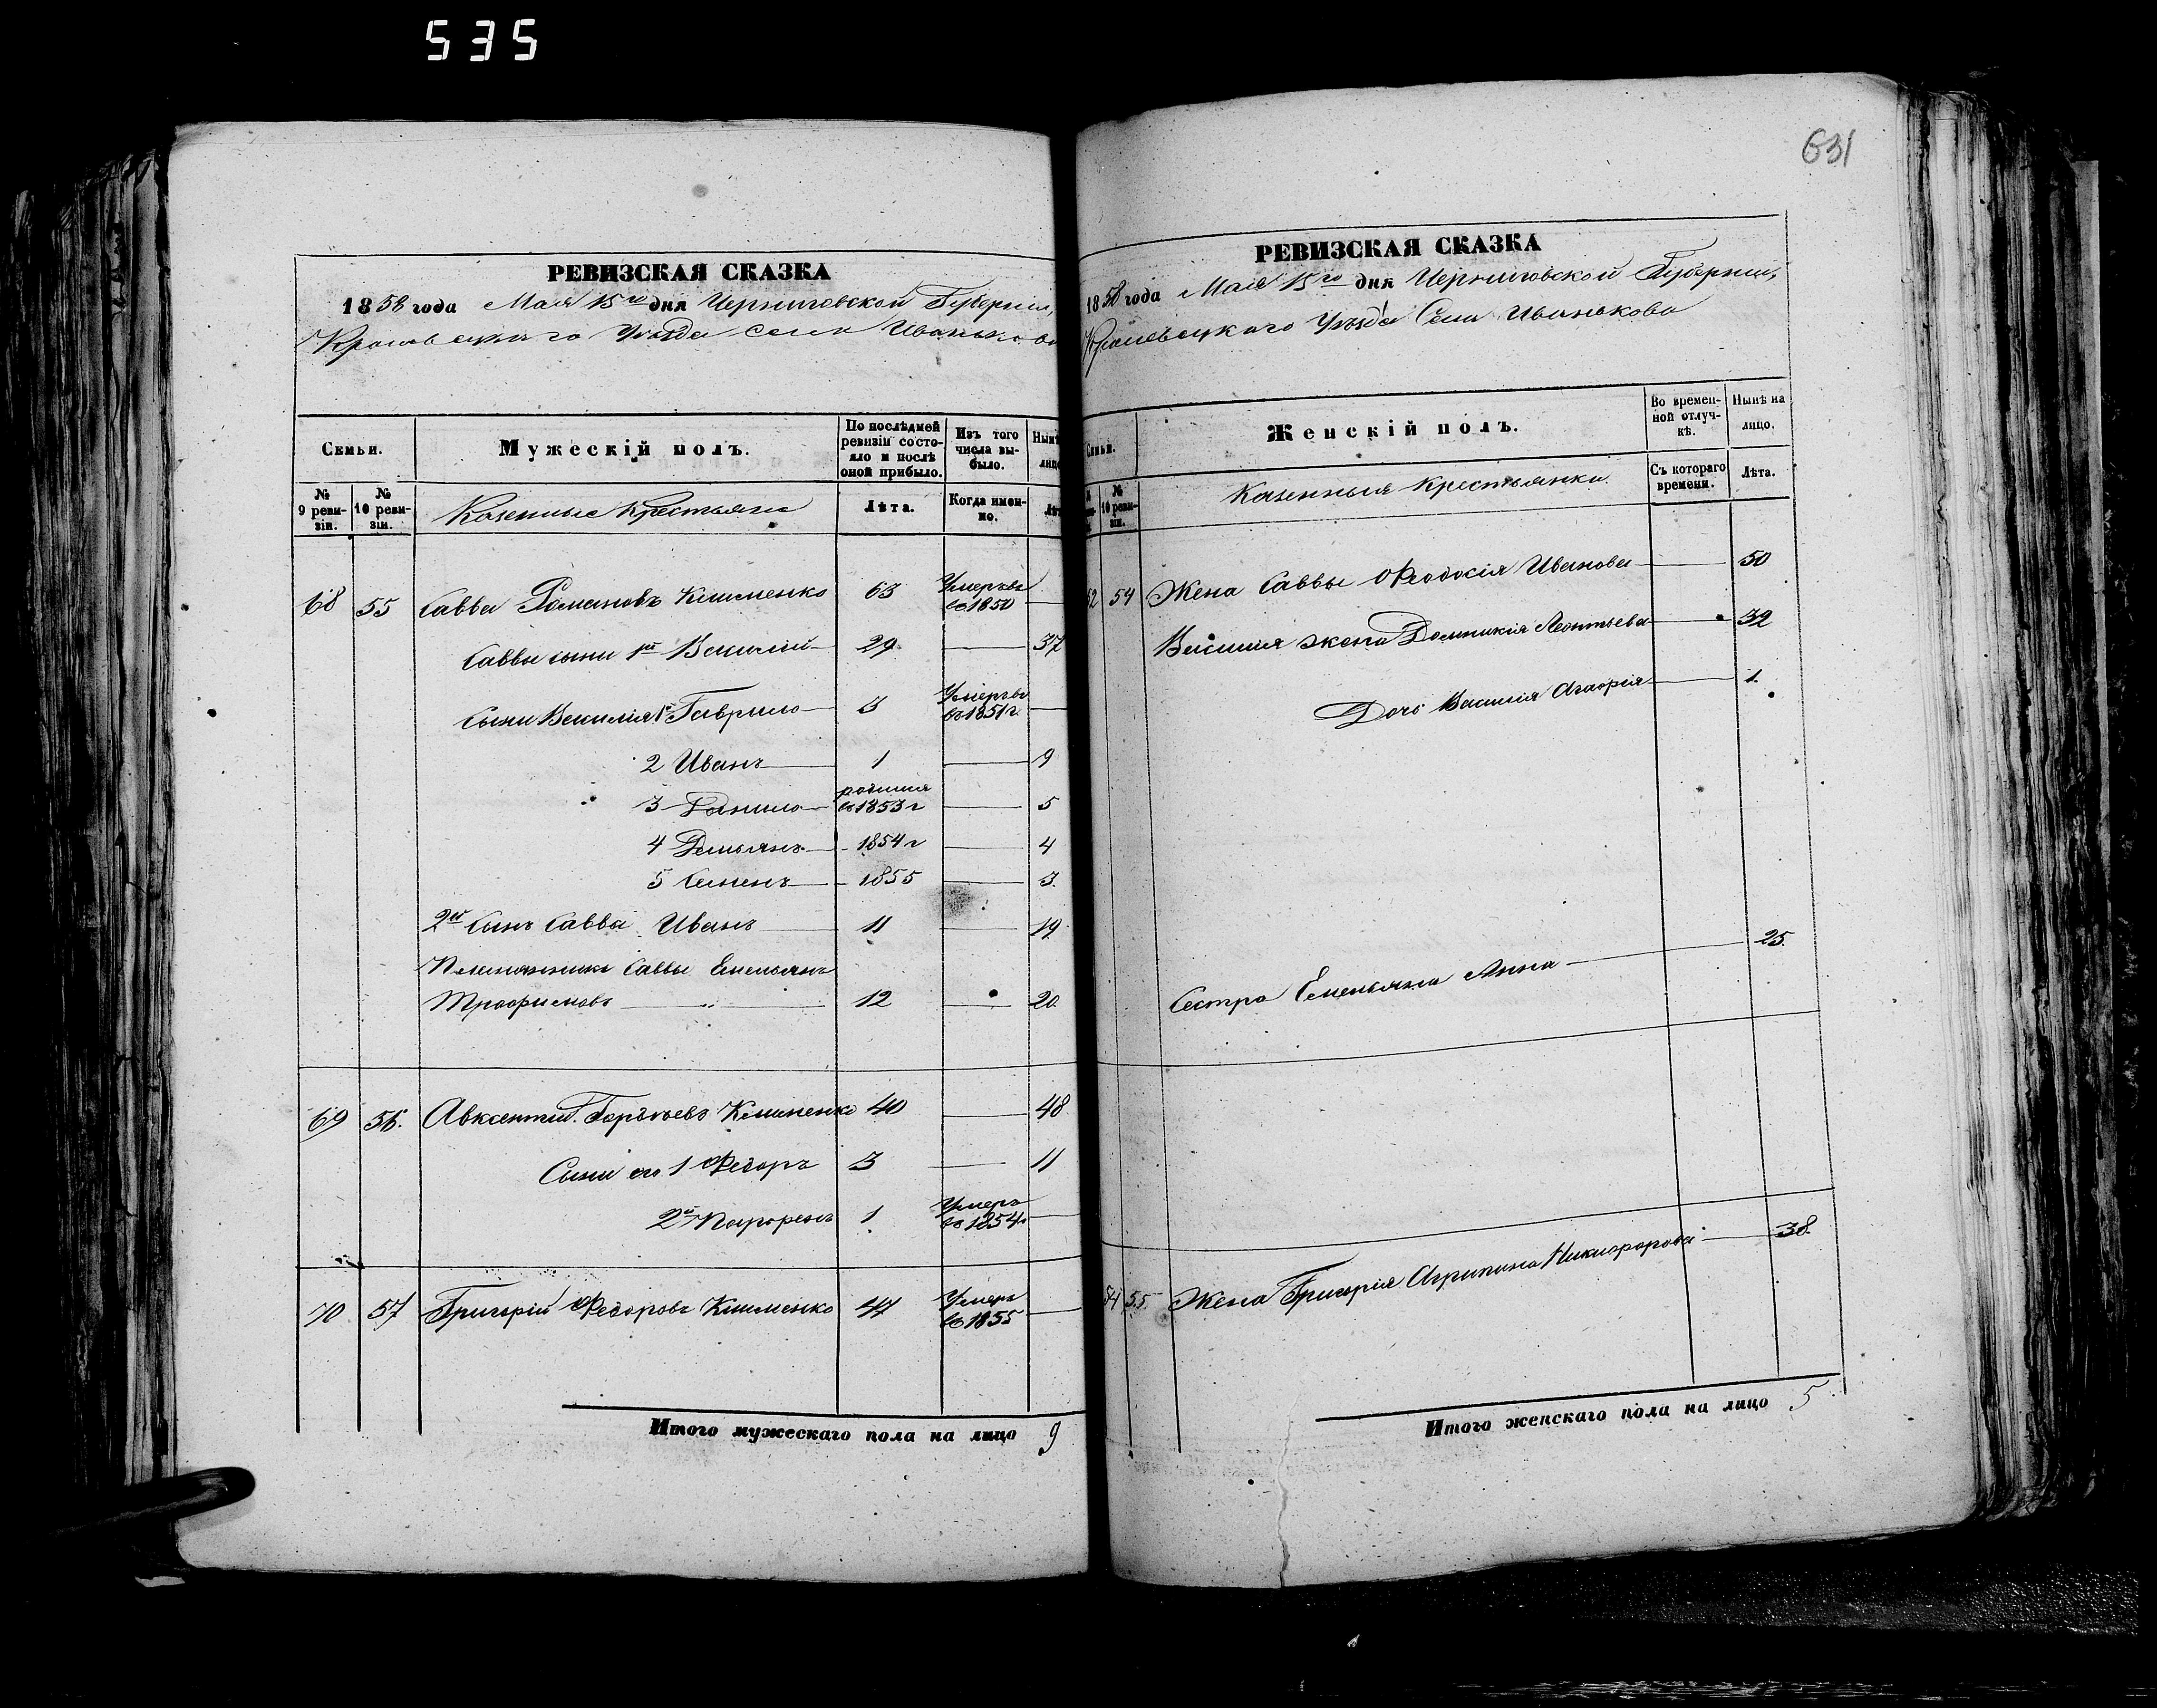 535
РЕВИЗСКАЯ СКАЗКА
1858 года Мая 15го дня Черниговской Губерніи,
Кролевецкаго Уѣзда села Иванькова
Семьи.
Мужескій полъ.
По послѣдней ревизіи состояло и послѣ оной прибыло.
Изъ того числа выбыло.
Нынѣ лицо
№ 9 ревизіи.
№ 10 ревизіи.
Казенные Крестьяне
Лѣта.
Когда именно.
Лѣт
68 55 Савва Романовъ Клименко 63 Умеръ въ 1850
Саввы сыни 1й Василий 29 37
Сыни Василия 1й Гаврило 3 Умеръ въ 1851 г.
2 Иванъ 1 9
3 Данило родился въ 1853 г 5
4 Демьянъ 1854 г 4
5 Семенъ 1855 3.
2й Сынъ Савва Иванъ 11 19
Племянникъ Саввы Емельянъ
Трофимовъ 12 20.
69 56. Авксентий Горѣевъ Клименко 40 48
Сыни его 1 Федоръ 3 11
2й Парфенъ 1 Умеръ въ 1854 г
70 57 Григорій Федоровъ Клименко 47 Умеръ въ 1855
Итого мужескаго пола на лицо 9
631
РЕВИЗСКАЯ СКАЗКА
1858 года Мая 15го дня Черниговской Губерніи,
Кролевецкаго Уѣзда Села Иванькова
Семьи.
Женскій полъ.
Во временной отлучкѣ.
Нынѣ на лицо.
№ 10 ревизіи.
Казенныя Крестьянки.
Съ котораго времени.
Лѣта.
52 54 Жена Саввы Феодосія Иванова 50
Василия жена Домникія Леонтьева 32
Дочь Василія Агафія 1.
Сестра Емельяна Анна 25.
54 55 Жена Григорія Агрипина Никифорова 38.
Итого женскаго пола на лицо 5